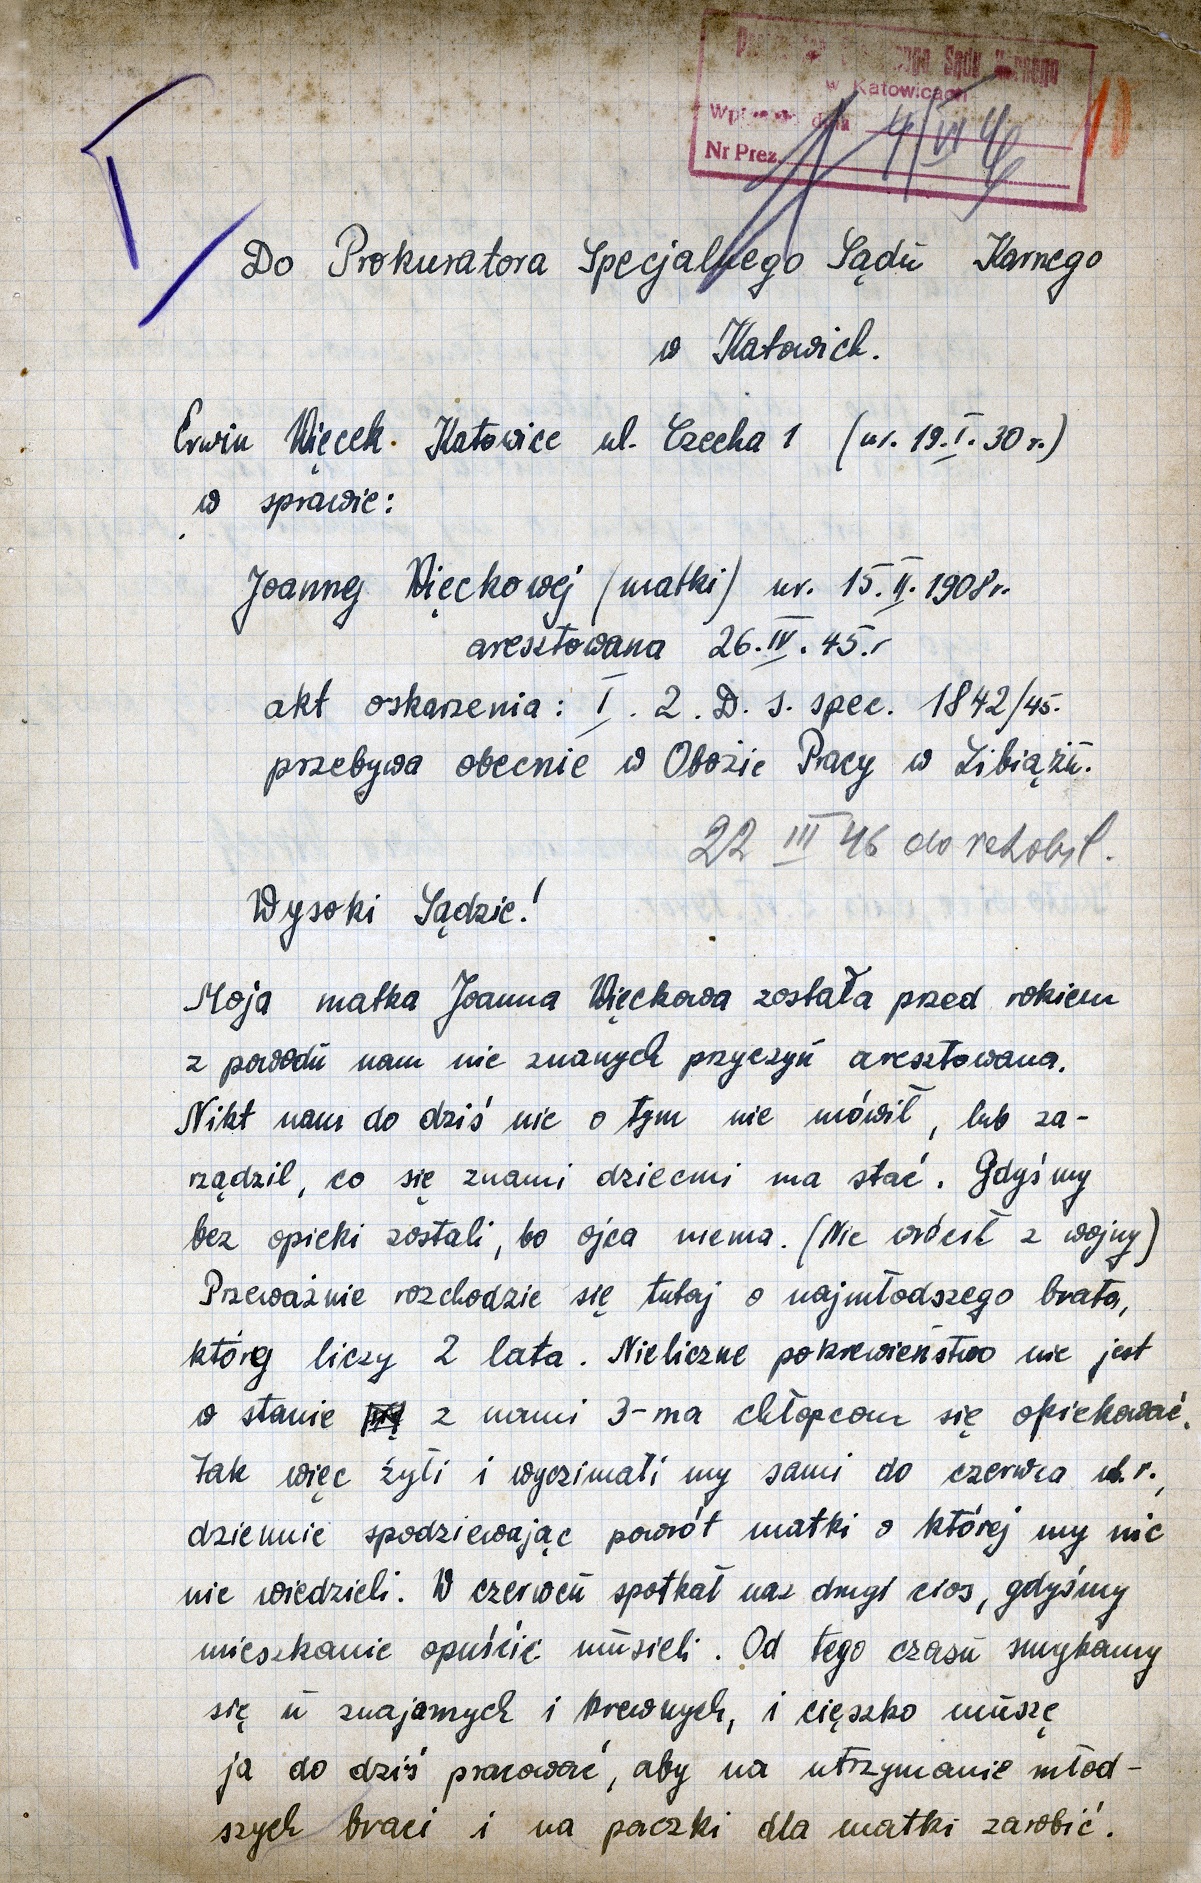 Sądu Karnego
w Katowicach
dnia 4/VI 46
Nr Prez.
Do Prokuratora Specjalnego Sądu Karnego
w Katowich.
Erwin Więcek. Katowice ul. Czecha 1 (ur. 19.I.30 r.)
w sprawie:
Joanny Więckowej (matki) ur. 15.II.1908r.
aresztowana 26.IV.45.r
akt oskarzenia: I. 2. D. s. spec. 1842/45.
przebywa obecnie w Obozie Pracy w Libiążu.
22 III 46 do rehabil.
Wysoki Sądzie!
Moja matka Joanna Więckowa została przed rokiem
z powodu nam nie znanych przyczyn aresztowana.
Nikt nam do dziś nic o tym nie mówił, lub za-
rządzil, co się znami dziecmi ma stać. Gdyśmy
bez opieki zostali, bo ojca niema. (Nie wrócił z wojny)
Przeważnie rozchodzie się tutaj o najmłodszego brata,
który liczy 2 lata. Nieliczne pokrewieństwo nie jest
w stanie z nami 3-ma chłopcom się opiekować.
Tak więc żyli i wyczimali my sami do czerwca ub.r.,
dziennie spodziewając powrót matki o której my nic
nie wiedzieli. W czerwcu spotkał nas drugi cios, gdyśmy
mieszkanie opuścić musieli. Od tego czasu smykamy
się u znajamych i krewnych, i cięszko muszę
ja do dziś pracować, aby na utrzymanie młod-
szych braci i na paczki dla matki zarobić.